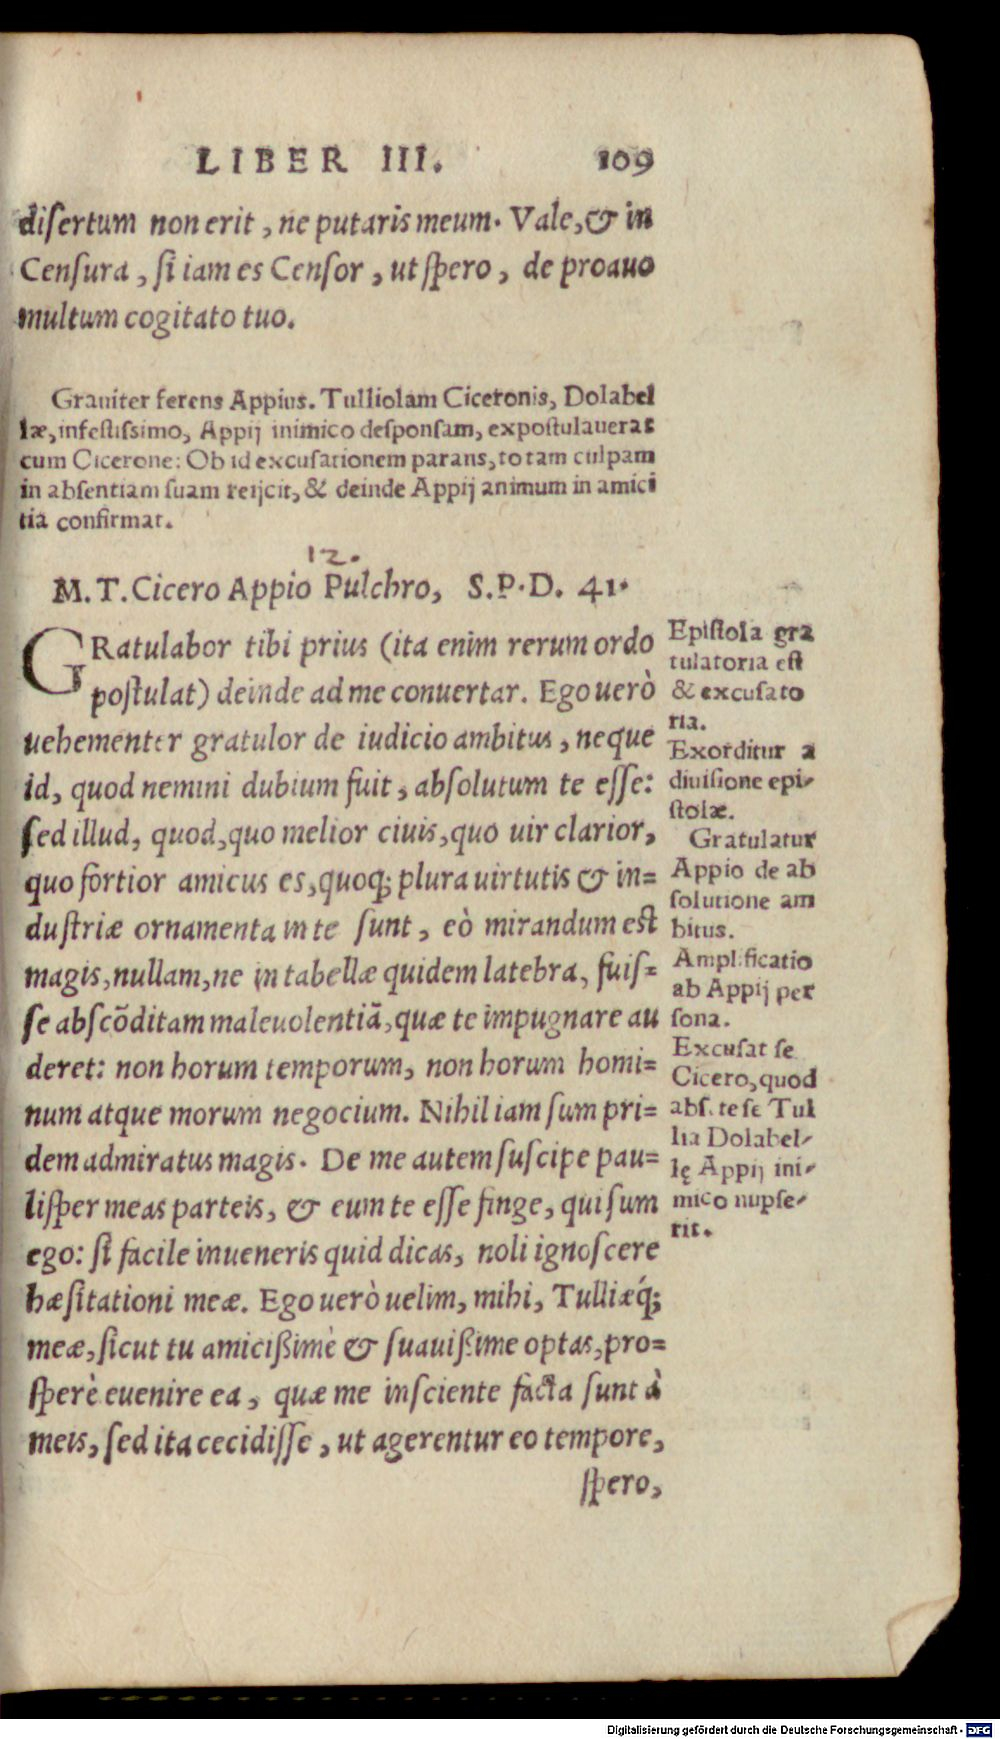 LIBER III. 109
diſertum non erit, ne putaris meum. Vale, & in
Cenſura, ſi iam es Cenſor, ut ſpero, de proauo
multum cogitato tuo.
Grauiter ferens Appius. Tulliolam Ciceronis, Dolabel
læ, infeſtiſsimo, Appij inimico deſponſam, expoſtulauerat
cum Cicerone: Ob id excuſationem parans, totam culpam
in abſentiam ſuam reijcit, & deinde Appij animum in amici
tia confirmat.
12.
M. T. Cicero Appio Pulchro, S.P.D. 41.
GRatulabor tibi prius (ita enim rerum ordo
poſtulat) deinde ad me conuertar. Ego uerò
uehementer gratulor de iudicio ambitus, neque
id, quod nemini dubium fuit, abſolutum te eſſe:
ſed illud, quod, quo melior ciuis, quo uir clarior,
quo fortior amicus es, quoq; plura uirtutis & in=
duſtriæ ornamenta in te ſunt, eò mirandum eſt
magis, nullam, ne in tabellæ quidem latebra, fuiſ=
ſe abſcõditam maleuolentiã, quæ te impugnare au
deret: non horum temporum, non horum homi=
num atque morum negocium. Nihil iam ſum pri=
dem admiratus magis. De me autem ſuſcipe pau=
liſper meas parteis, & eum te eſſe finge, qui ſum
ego: ſi facile inueneris quid dicas, noli ignoſcere
hæſitationi meæ. Ego uerò uelim, mihi, Tulliæq́;
meæ, ſicut tu amicißimè & ſuauißime optas, pro=
ſperè euenire ea, quæ me inſciente facta ſunt à
meis, ſed ita cecidiſſe, ut agerentur eo tempore,
ſpero,
Epiſtola gra
tulatoria eſt
& excuſato
ria.
Exorditur a
diuiſione epi-
ſtolæ.
Gratulatur
Appio de ab
ſolutione am
bitus.
Amplificatio
ab Appij per
ſona.
Excuſat ſe
Cicero, quod
abſ. te ſe Tul
lia Dolabel-
lę Appij ini-
mico nupſe-
rit.
Digitalisierung gefördert durch die Deutsche Forschungsgemeinschaft - DFG